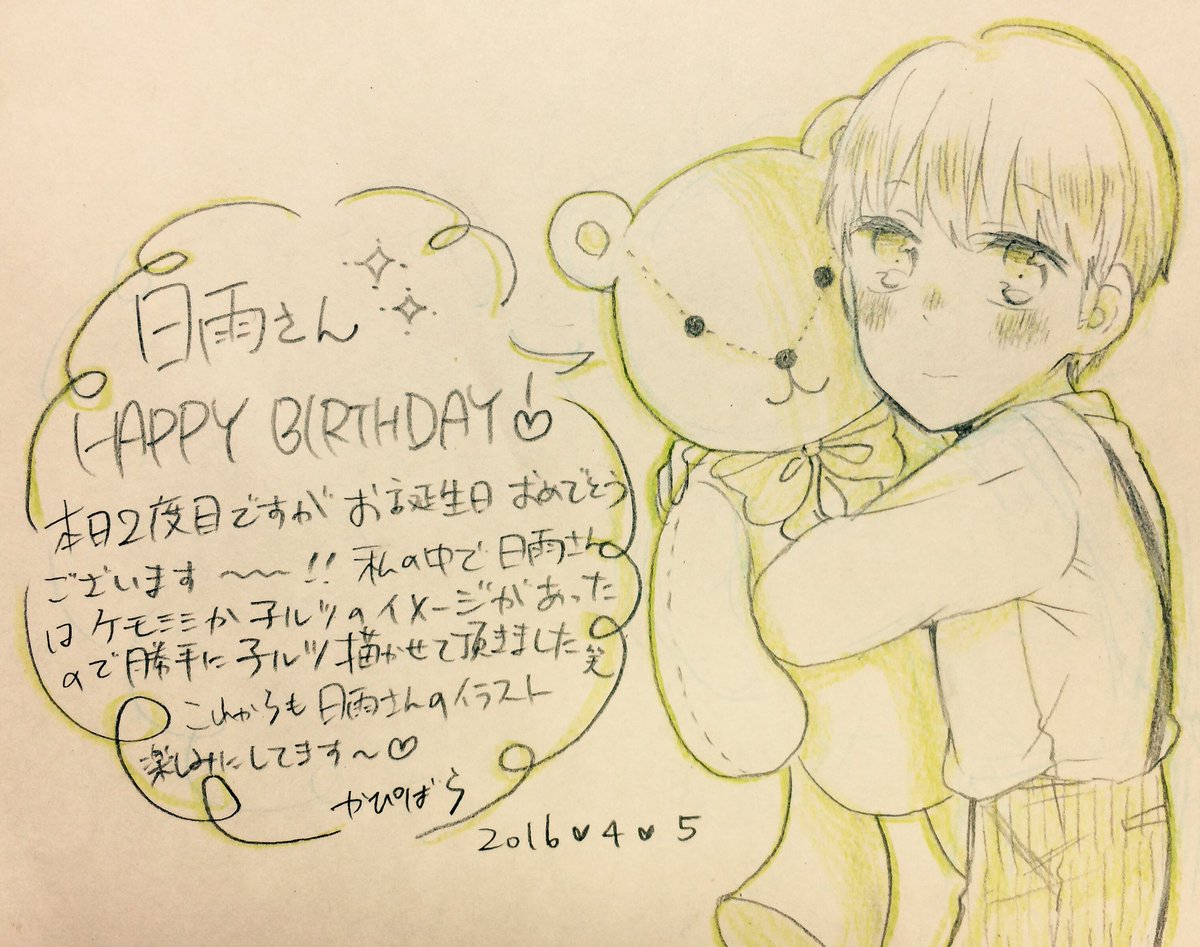 日雨さん
HAPPY BIRTHDAY!
本日2度目ですがお誕生日おめでとう
ございます〜〜!! 私の中で日雨さん
はケモミミか子ルツのイメージがあった
ので勝手に子ルツ描かせて頂きました笑
これからも日雨さんのイラスト
楽しみにしてます〜♡
かぴばら
2016♥4♥5